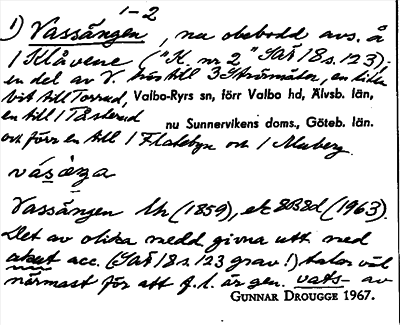 1-2
1) Vassängen, nu obebodd avs. å
1 Klåvene ("K. nr 2" SOÄ 18 s. 123);
en del av V. hös till 3 Strömäter, en liten
bit till Torrud, Valbo-Ryrs sn, förr Valbo hd, Älvsb. län,
en till 1 Tåsterud nu Sunnervikens doms., Göteb. län.
och förr en till 1 Flatebyn och 1 Moberg.
vásæŋa
Vassängen Lk (1859), ek 8B8d (1963).
Det av olika medd givna utt med
akut acc. (SOÄ 18 s. 123 grav!) talar väl
närmast för att f. l. är gen. vats- av
GUNNAR DROUGGE 1967.